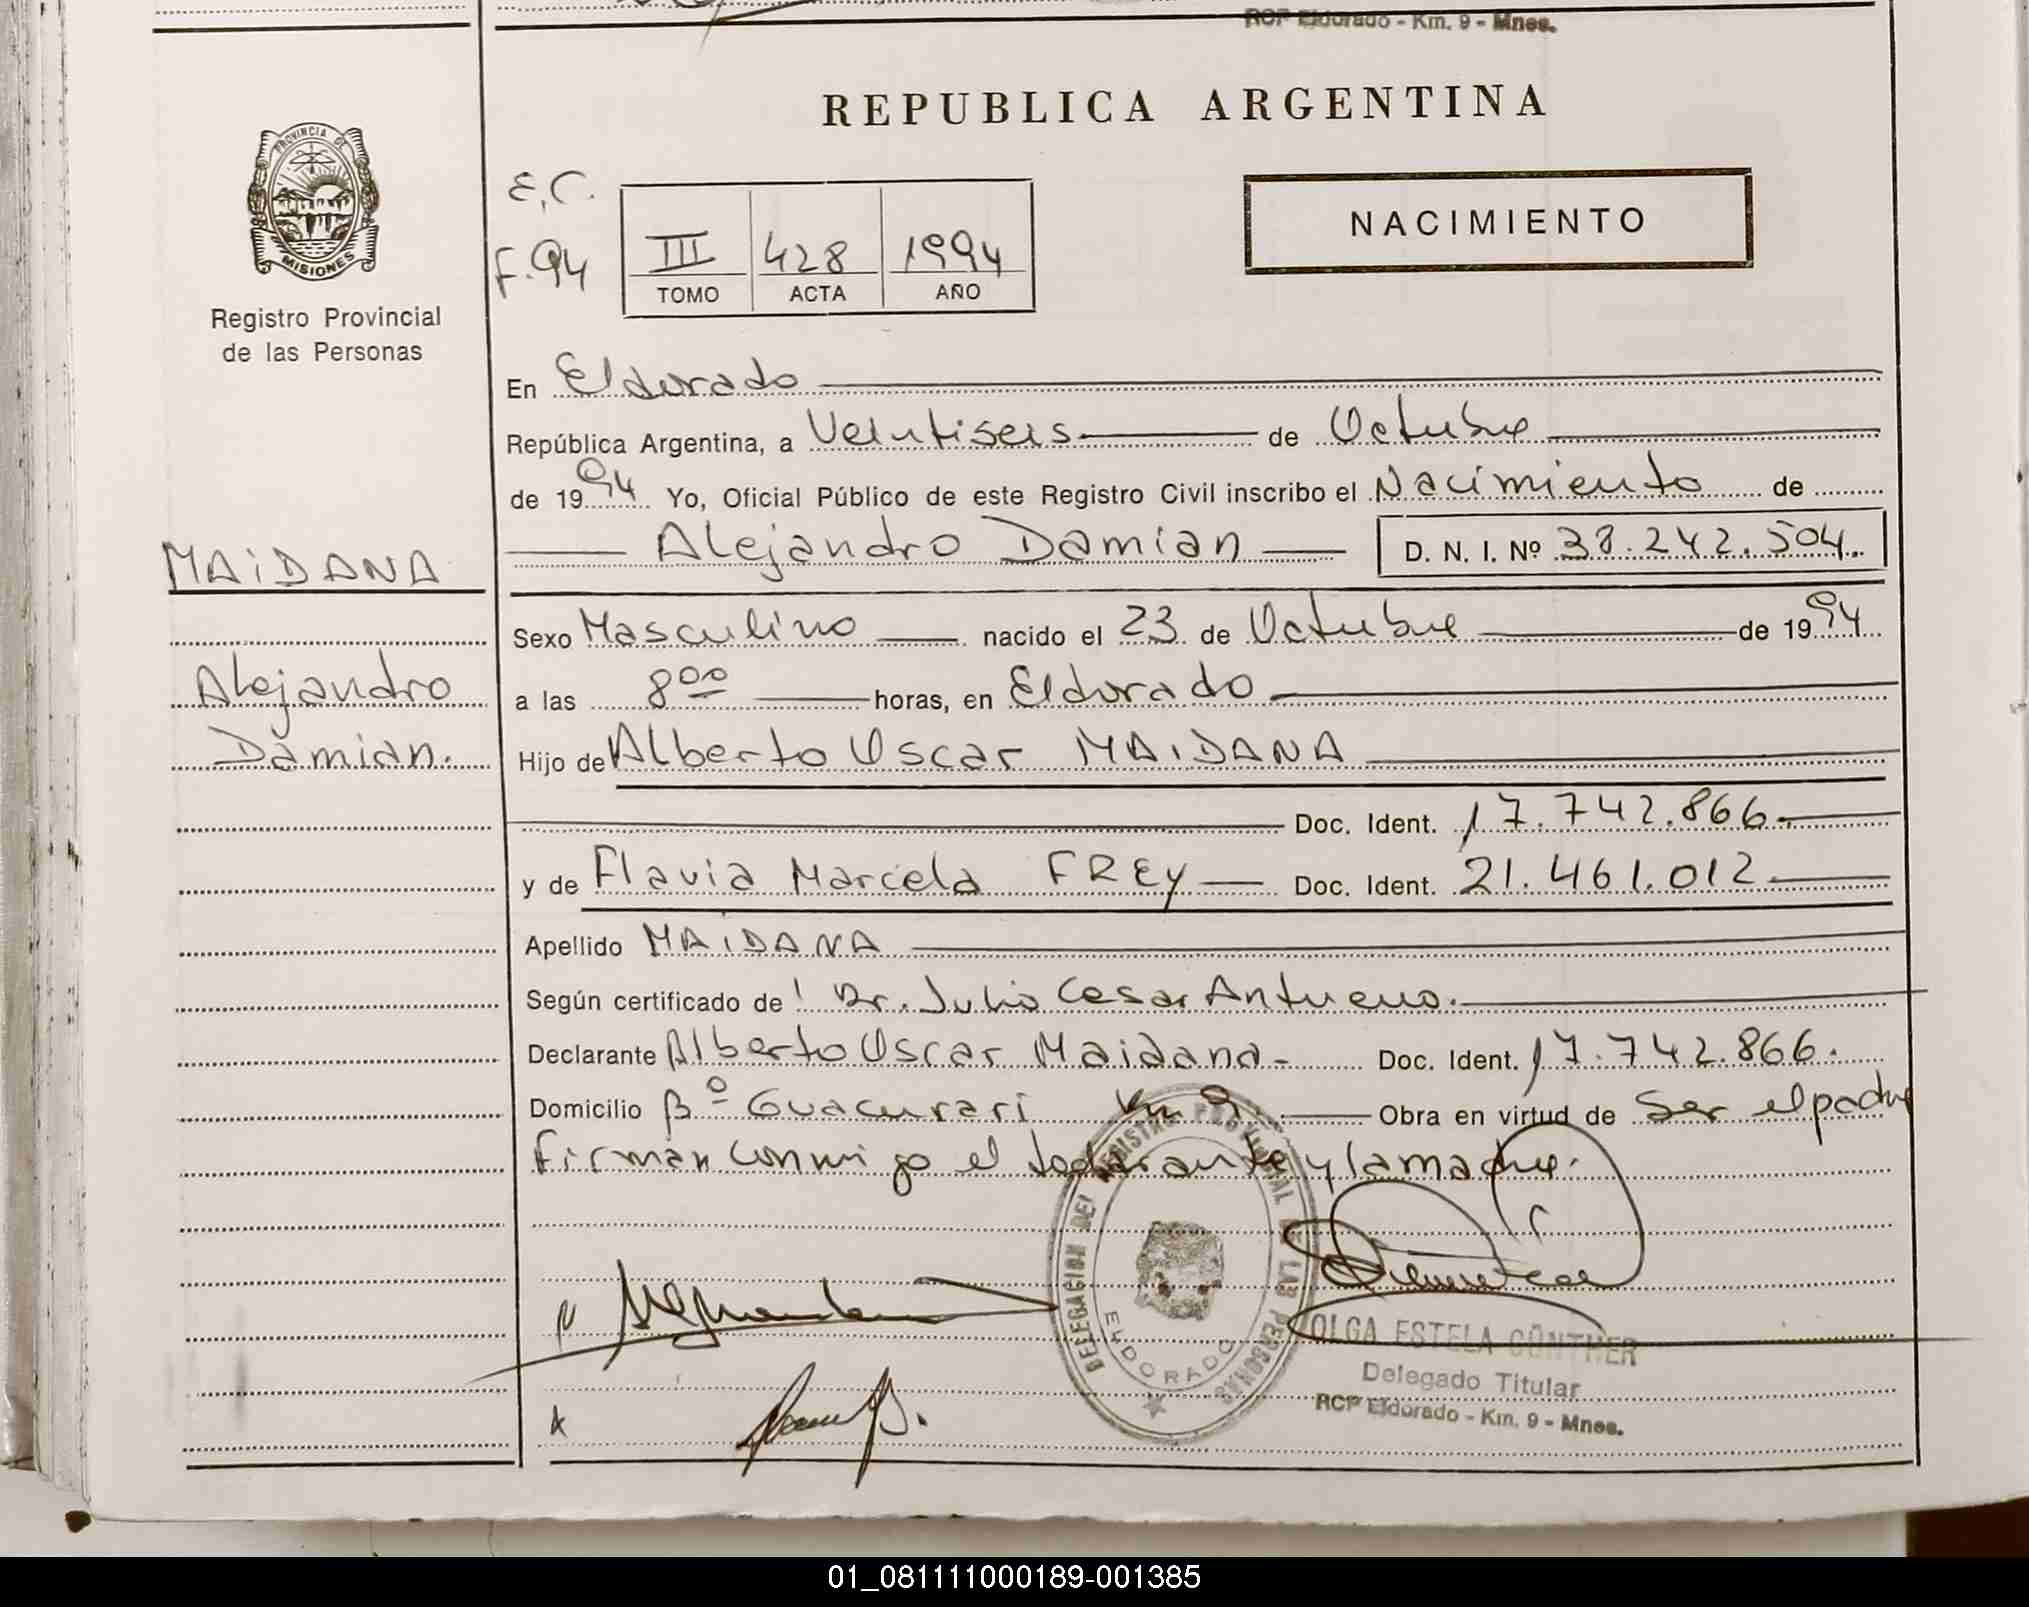 RCP Eldorado - Km. 9 - Mnes.
REPUBLICA ARGENTINA
PROVINCIA DE
MISIONES
Registro Provincial
de las Personas
E.C.
F.94
III 428 1994
TOMO ACTA AÑO
NACIMIENTO
En Eldorado
República Argentina, a Veintiseis de Octubre
de 1994 Yo, Oficial Público de este Registro Civil inscribo el Nacimiento de
Alejandro Damian D. N. I. Nº 38.242.504.
MAiDANA
Alejandro
Damian.
Sexo Masculino nacido el 23 de Octubre de 1994
a las 8 00 horas, en Eldorado
Hijo de Alberto Oscar MAiDANA
Doc. Ident. 17.742.866.
y de Flavia Marcela FREy Doc. Ident. 21.461.012.
Apellido MAiDANA
Según certificado de Dr. Julio Cesar Antueno.
Declarante Alberto Oscar Maidana- Doc. Ident. 17.742.866.
Domicilio Bº Guacurari Km 9. Obra en virtud de Ser el padre
firman conmigo el declarante y la madre.
DELEGACION DEL REGISTRO PROVINCIAL DE LAS PERSONAS
ELDORADO
OLGA ESTELA GÜNTHER
Delegado Titular
RCP Eldorado - Km. 9 - Mnes.
01_081111000189-001385